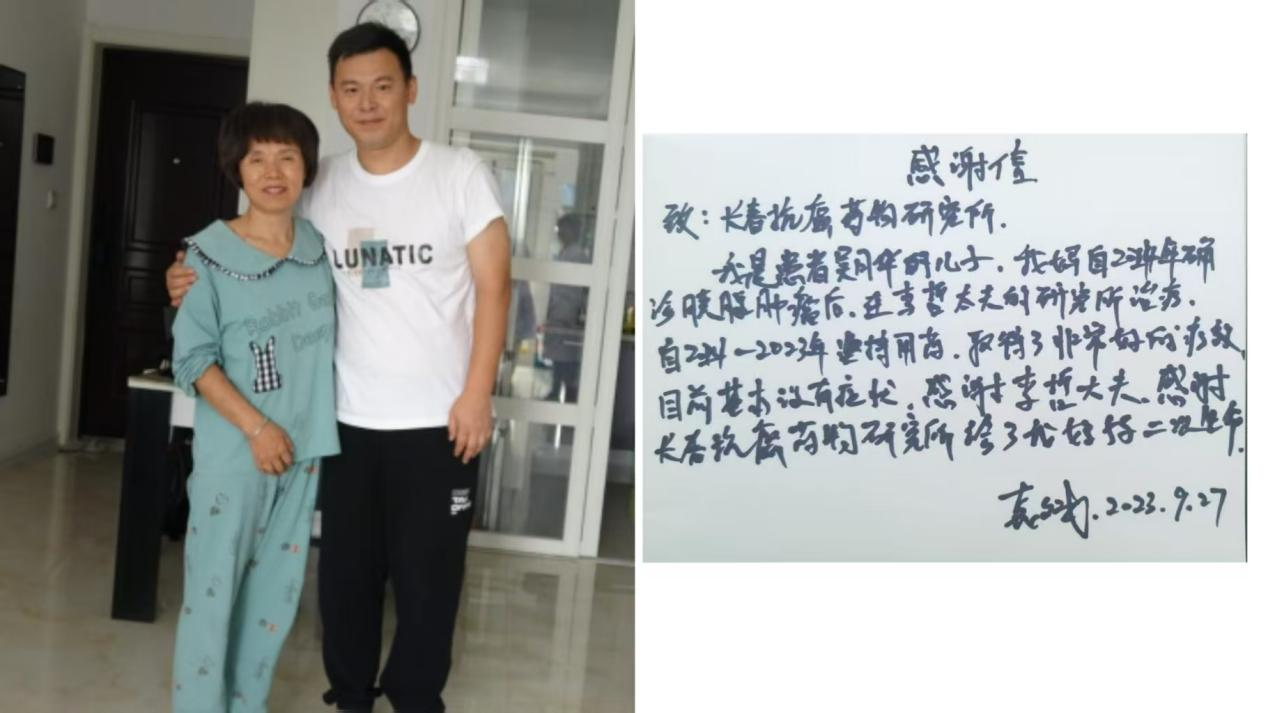 LUNATIC
Rabbit
感谢信
致:长春抗癌药物研究所.
我是患者吴月华的儿子,我妈自年确
诊胰腺肿瘤后,在李哲大夫的研究所治疗.
自-2023年坚持用药,取得了非常好的疗效,
目前基本没有症状,感谢李哲大夫,感谢
长春抗癌药物研究所给了我妈第二次生命.
2023.9.27